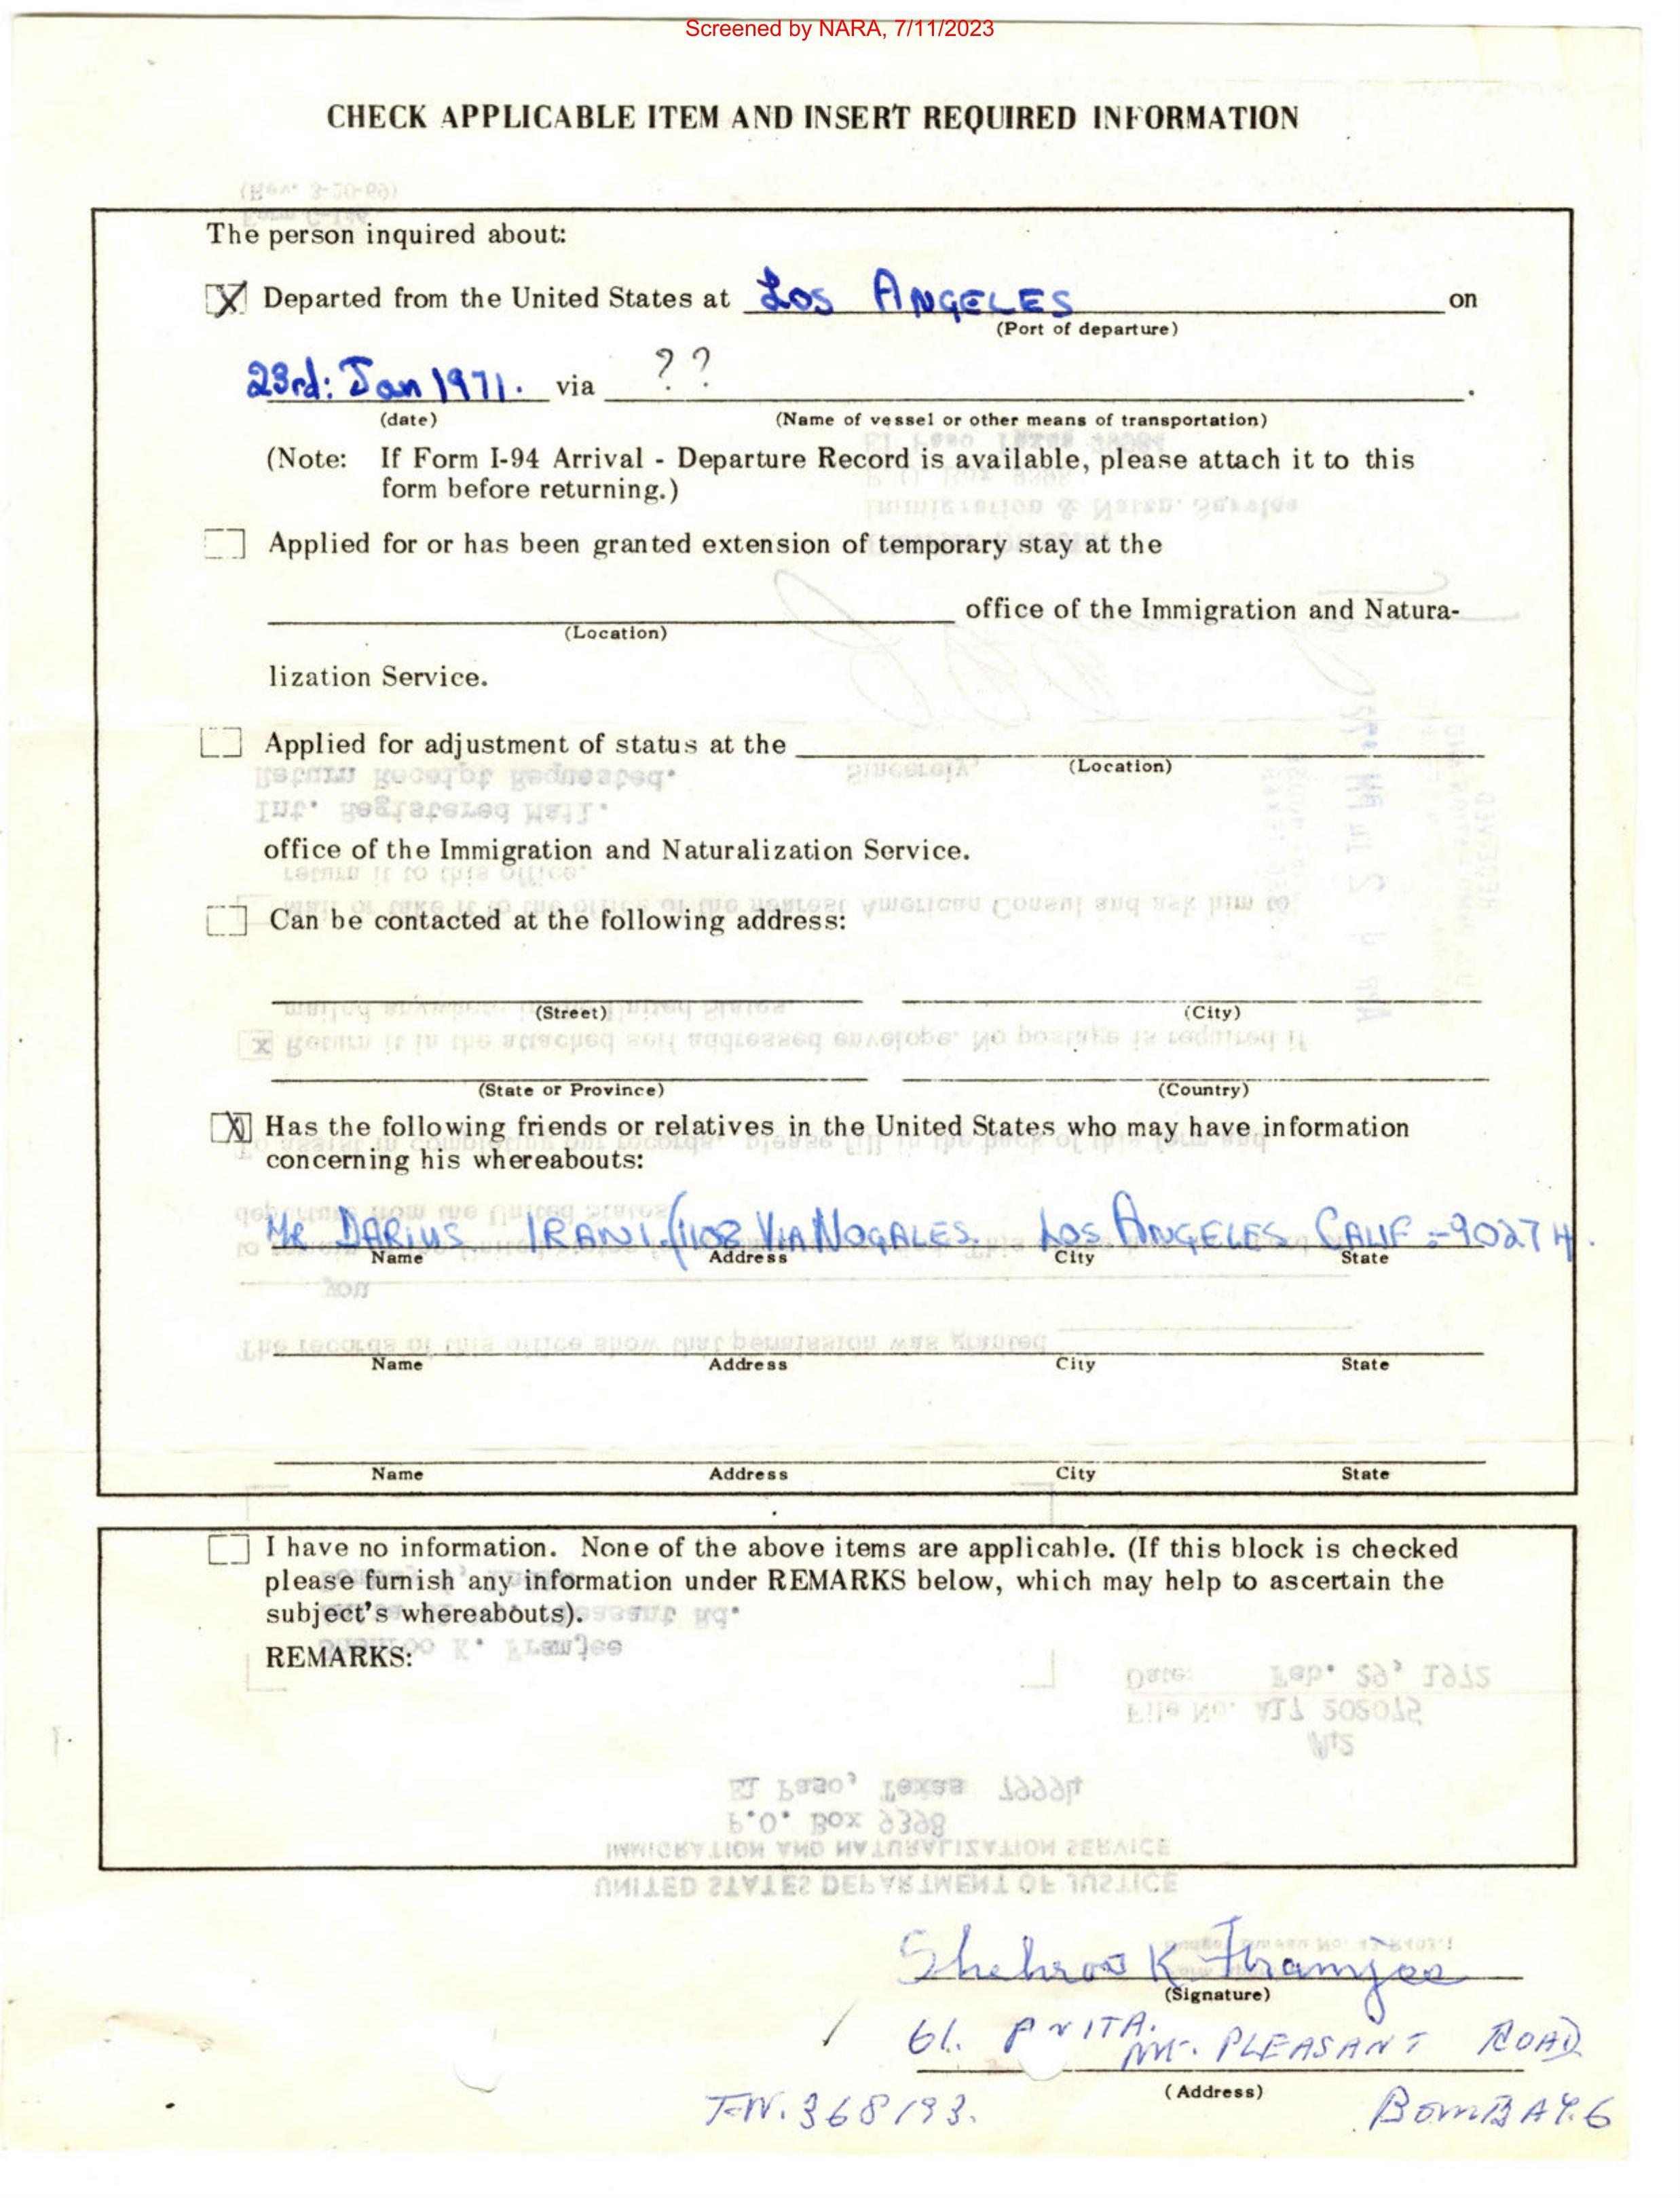 Screened by NARA, 7/11/2023
CHECK APPLICABLE ITEM AND INSERT REQUIRED INFORMATION
The person inquired about:
X Departed from the United States at LOS ANGELES on
(Port of departure)
23rd: Jan 1971. via ? ? .
(date) (Name of vessel or other means of transportation)
(Note: If Form I-94 Arrival - Departure Record is available, please attach it to this
form before returning.)
Applied for or has been granted extension of temporary stay at the
office of the Immigration and Natura-
(Location)
lization Service.
Applied for adjustment of status at the
(Location)
office of the Immigration and Naturalization Service.
Can be contacted at the following address:
(Street) (City)
(State or Province) (Country)
X Has the following friends or relatives in the United States who may have information
concerning his whereabouts:
MR DARIUS IRANI. 1108 VIA NOGALES. LOS ANGELES CALIF =90274.
Name Address City State
Name Address City State
Name Address City State
I have no information. None of the above items are applicable. (If this block is checked
please furnish any information under REMARKS below, which may help to ascertain the
subject's whereabouts).
REMARKS:
Shehroo K Framjee
(Signature)
61. MT. PLEASANT ROAD
(Address)
368193. BOMBAY.6